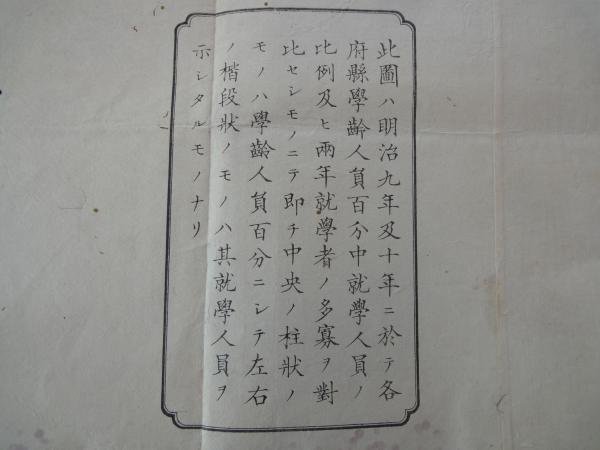 此圖ハ明治九年及十年ニ於テ各
府縣學齡人員百分中就學人員ノ
比例及ヒ兩年就學者ノ多寡ヲ對
比セシモノニテ即チ中央ノ柱狀ノ
モノハ學齡人員百分ニシテ左右
ノ楷段狀ノモノハ其就學人員ヲ
示シタルモノナリ